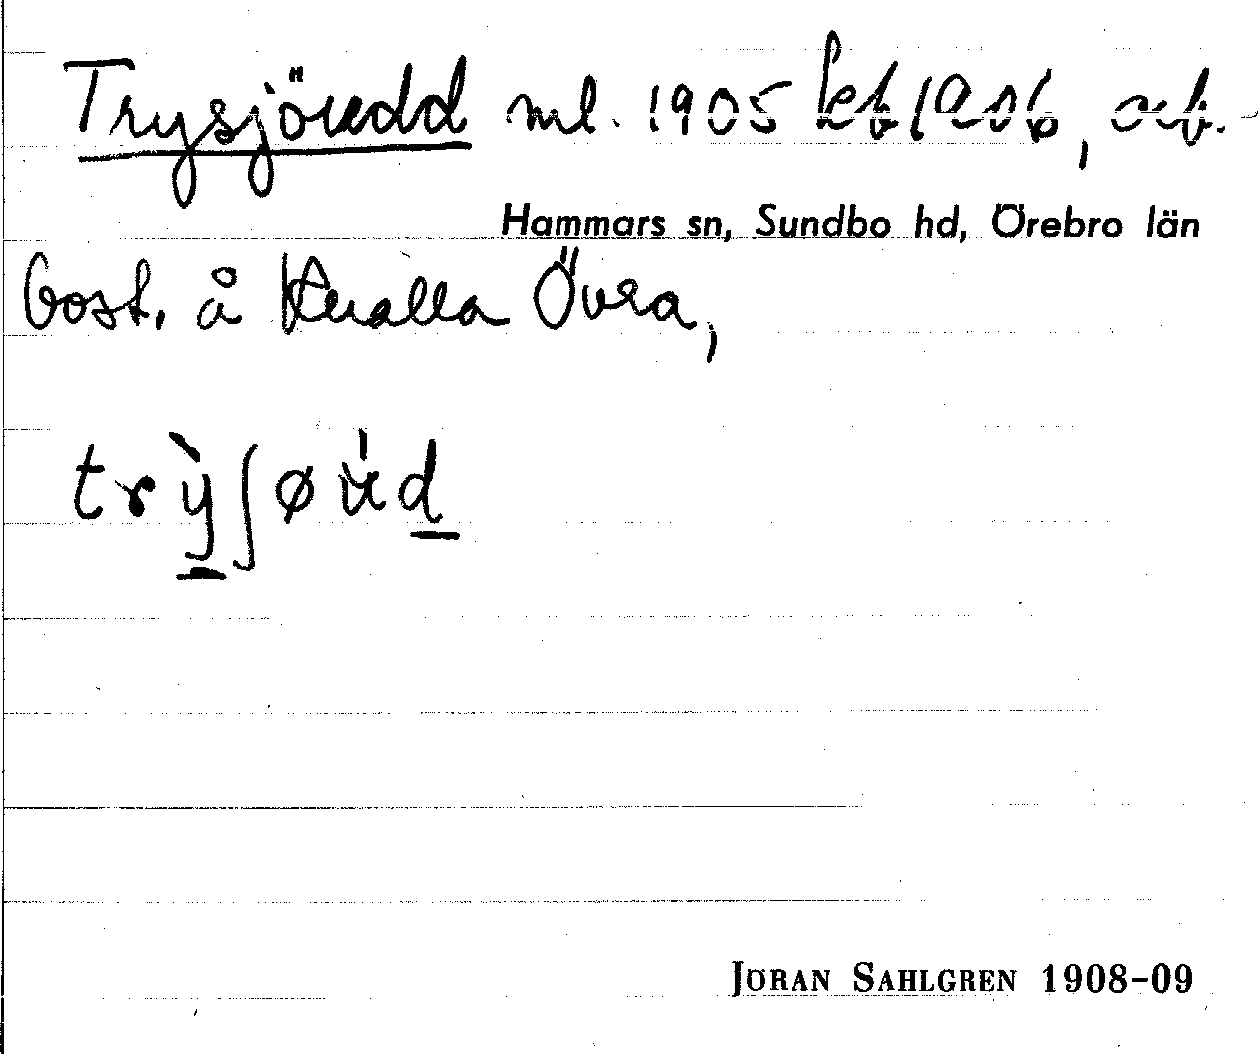 Trysjöudd ml. 1905 kb 1906, arb.-
Hammars sn, Sundbo hd, Örebro län
bost. å Kualla Övra,
trỳʃøùd
JÖRAN SAHLGREN 1908-09